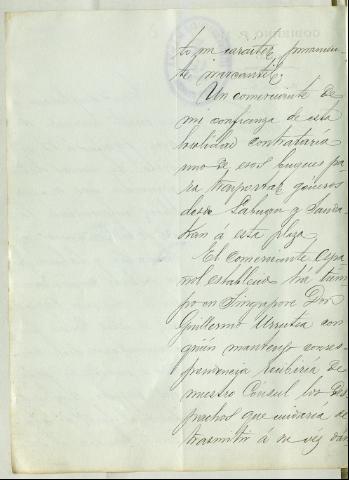 to su caracter puramen
te mercantil.
Un comerciante de
mi confianza de esta
localidad contrataría
uno de esos buques pa
ra trasportar géneros
desde Labuan y Sanda
kan á esta plaza.
El comerciante espa
ñol establecido há tiem
po en Singapore Don
Guillermo Urrutia con
quien mantengo corres
pondencia recibiría de
nuestro Consul los des
pachos que cuidaría de
trasmitir á su vez